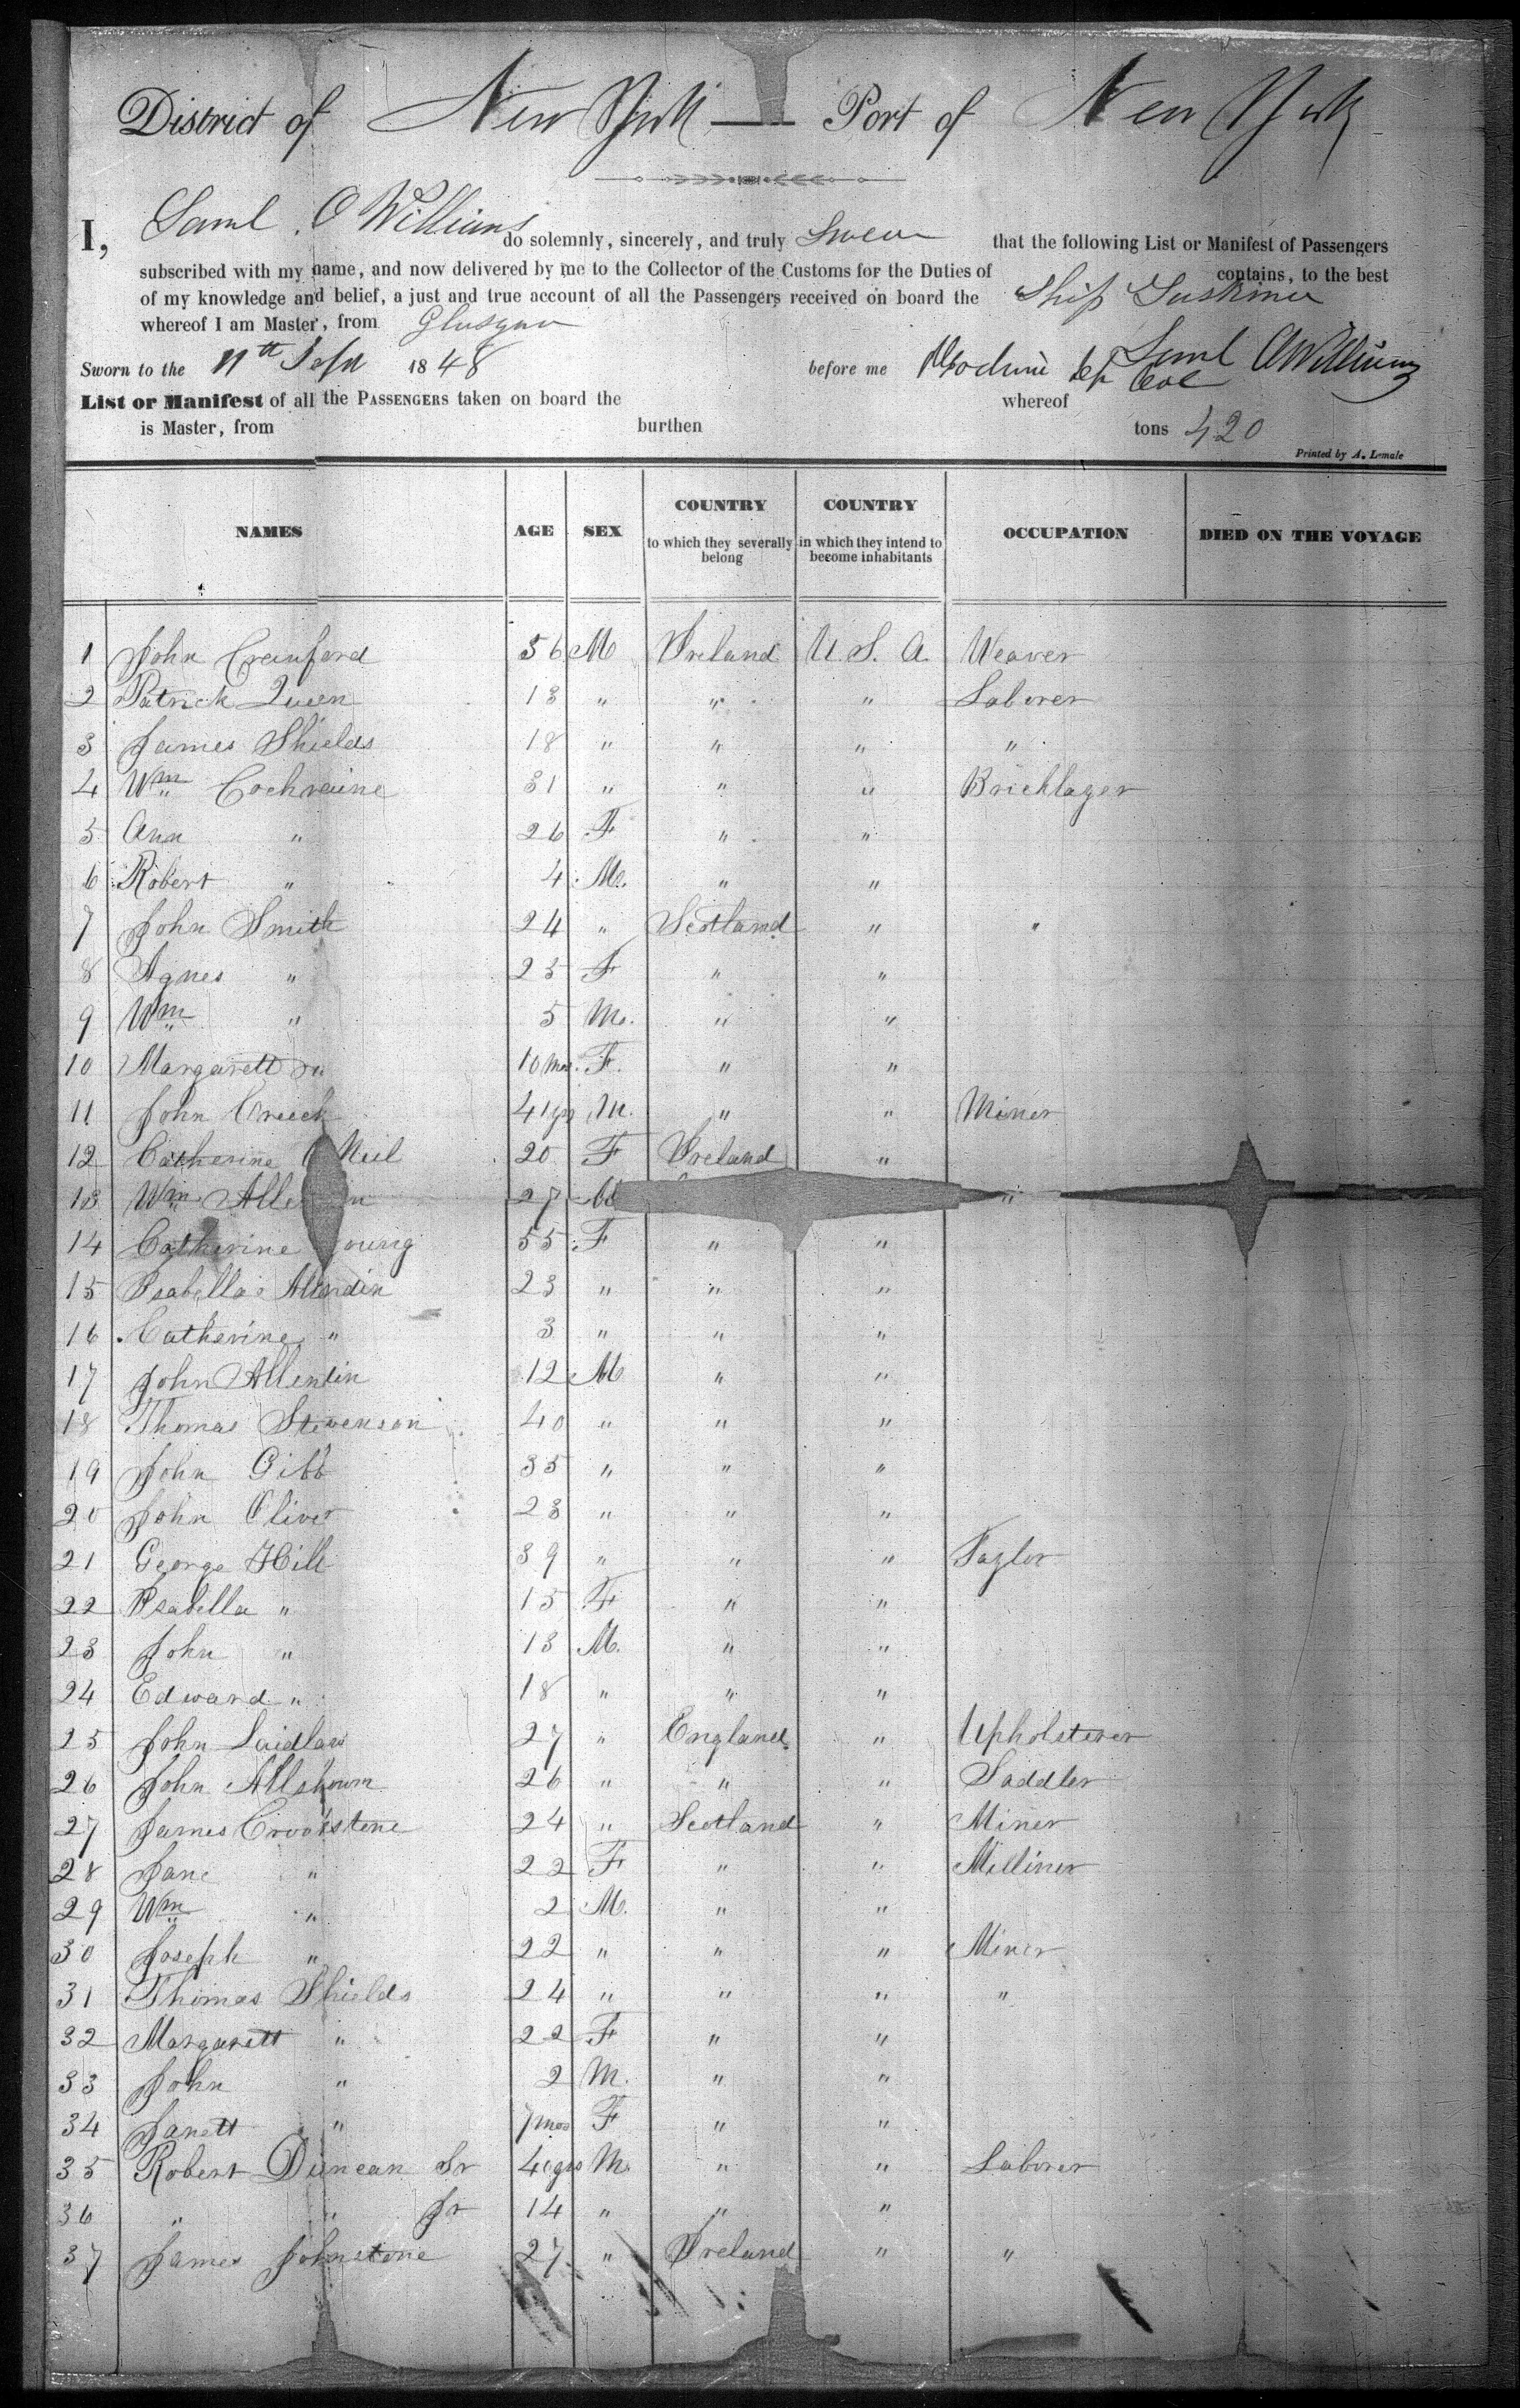 District of New York Port of New York
I, Saml. O Williams do solemnly, sincerely, and truly Swear that the following List or Manifest of Passengers
subscribed with my name, and now delivered by me to the Collector of the Customs for the Duties of contains, to the best
of my knowledge and belief, a just and true account of all the Passengers received on board the Ship
whereof I am Master, from Glasgow
Sworn to the 11th Sepr 1848 before me Saml O Williams
List or Manifest of all the PASSENGERS taken on board the whereof
is Master, from burthen tons 420
Printed by A. Lemale
NAMES AGE SEX COUNTRY to which they severally belong COUNTRY in which they intend to become inhabitants OCCUPATION DIED ON THE VOYAGE
1 John Crawford 56 M Ireland U. S. A. Weaver
2 Patrick Queen 18 " " " Laborer
3 James Shields 18 " " " "
4 Wm Cochraine 31 " " " Bricklayer
5 Ann " 26 F " "
6 Robert " 4 M. " "
7 John Smith 24 " Scotland " "
8 Agnes " 25 F " "
9 Wm " 5 M. " "
10 Margarett Do 10 mos. F. " "
11 John Creech 41 yrs M. " " Miner
12 Catherine O Neil 20 F Ireland "
13 Wm 27 M "
14 Catherine Young 55 F " "
15 Isabella 23 " " "
16 Catherine " 3 " " "
17 John Allendin 12 M " "
18 Thomas Stevenson 40 " " "
19 John Gibb 35 " " "
20 John Oliver 23 " " "
21 George Hill 39 " " " Taylor
22 Isabella " 15 F " "
23 John " 13 M. " "
24 Edward " 18 " " "
25 John Laidlaw 27 " England " Upholsterer
26 John 26 " " " Saddler
27 James Crookstone 24 " Scotland " Miner
28 Jane " 22 F " " Milliner
29 Wm " 2 M. " "
30 Joseph " 22 " " " Miner
31 Thomas Shields 24 " " " "
32 Margarett " 22 F " "
33 John " 2 M. " "
34 Janett " 7 mos F " "
35 Robert Duncan Sr 40 yrs M. " " Laborer
36 " " Jr 14 " " "
37 James Johnstone 27 " Ireland " "